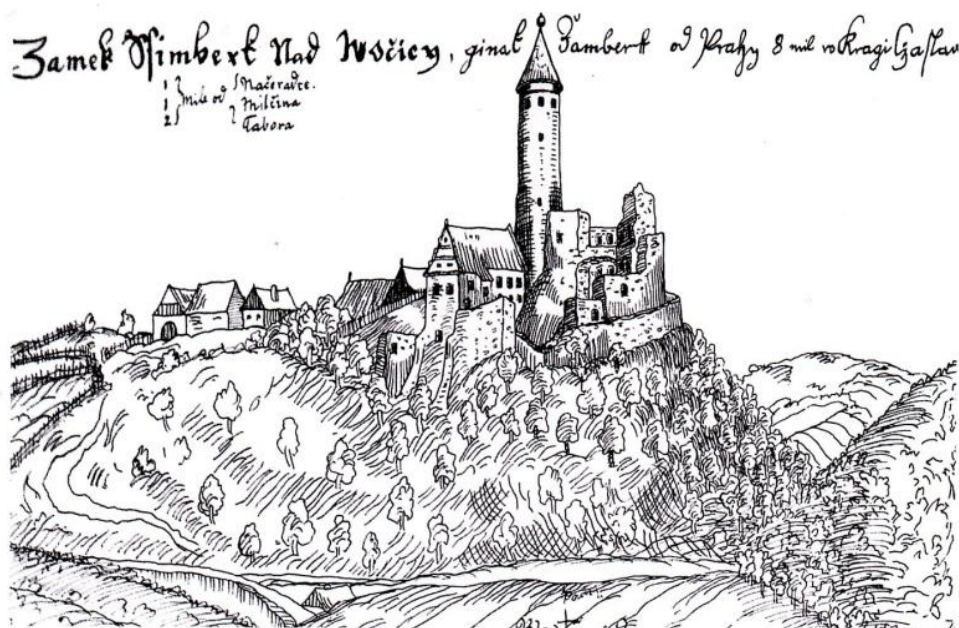 Zamek Ssimberk Nad Wočicy, ginak Žambert od Prahy 8 mil w Kragi Cžaslaw
1 } Mile od { Načeradce.
1 } Milčina
2 } Tabora